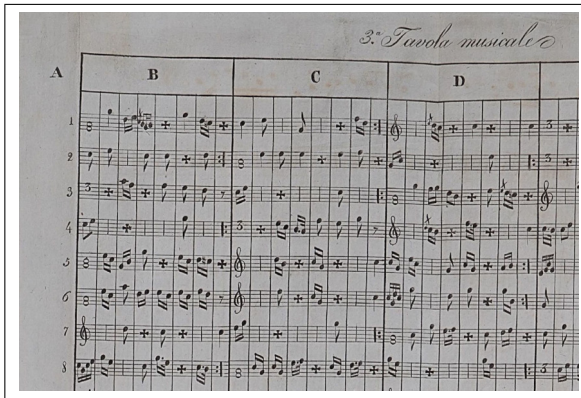 3.ª Tavola musicale
A B C D
1
2
3
4
5
6
7
8